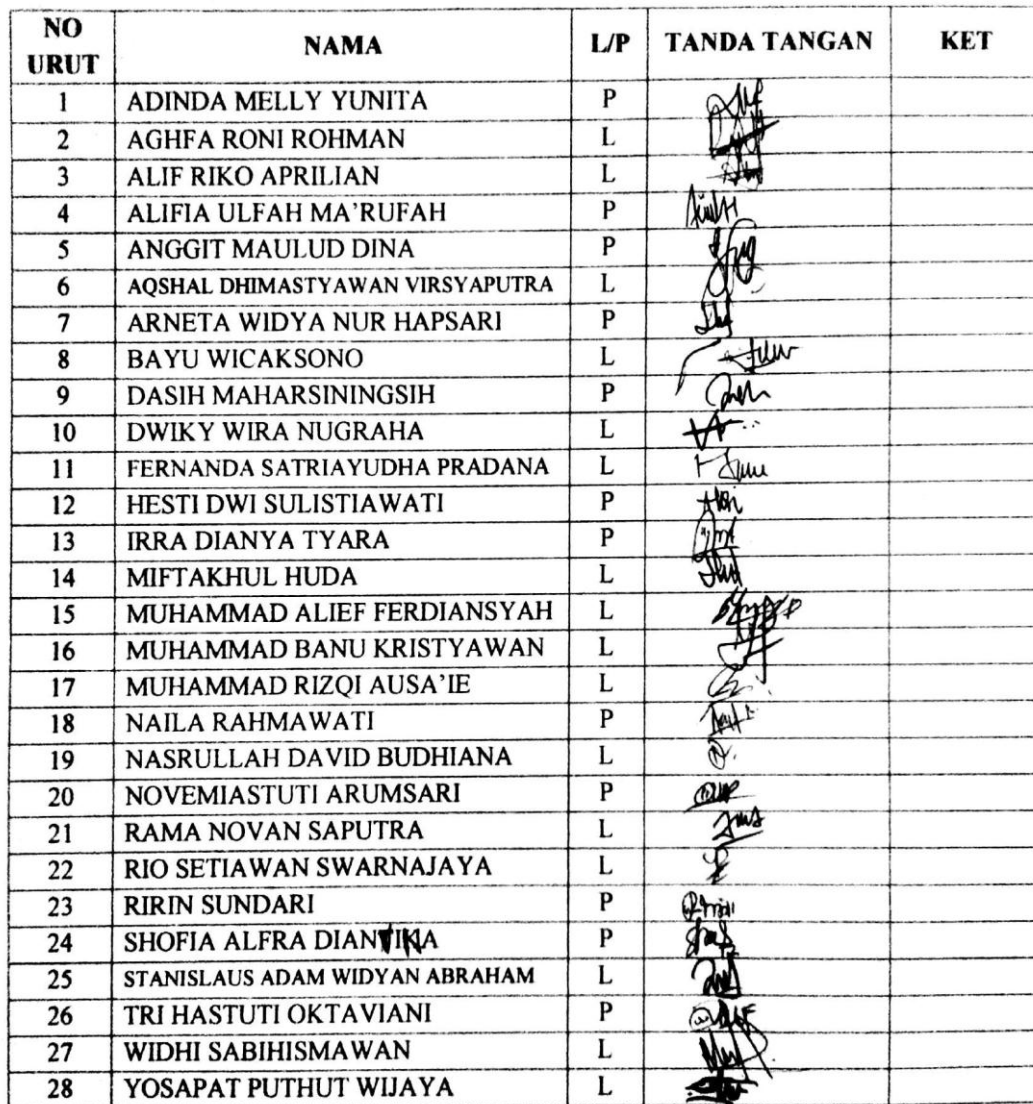 NO URUT NAMA L/P TANDA TANGAN KET
1 ADINDA MELLY YUNITA P
2 AGHFA RONI ROHMAN L
3 ALIF RIKO APRILIAN L
4 ALIFIA ULFAH MA'RUFAH P
5 ANGGIT MAULUD DINA P
6 AQSHAL DHIMASTYAWAN VIRSYAPUTRA L
7 ARNETA WIDYA NUR HAPSARI P
8 BAYU WICAKSONO L
9 DASIH MAHARSININGSIH P
10 DWIKY WIRA NUGRAHA L
11 FERNANDA SATRIAYUDHA PRADANA L
12 HESTI DWI SULISTIAWATI P
13 IRRA DIANYA TYARA P
14 MIFTAKHUL HUDA L
15 MUHAMMAD ALIEF FERDIANSYAH L
16 MUHAMMAD BANU KRISTYAWAN L
17 MUHAMMAD RIZQI AUSA'IE L
18 NAILA RAHMAWATI P
19 NASRULLAH DAVID BUDHIANA L
20 NOVEMIASTUTI ARUMSARI P
21 RAMA NOVAN SAPUTRA L
22 RIO SETIAWAN SWARNAJAYA L
23 RIRIN SUNDARI P
24 SHOFIA ALFRA DIANTIKA P
25 STANISLAUS ADAM WIDYAN ABRAHAM L
26 TRI HASTUTI OKTAVIANI P
27 WIDHI SABIHISMAWAN L
28 YOSAPAT PUTHUT WIJAYA L